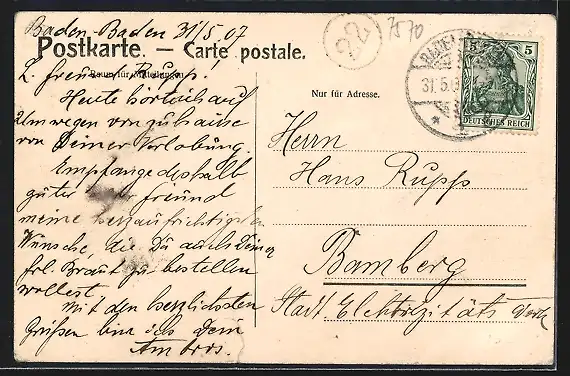 Baden-Baden 31/5 07
Postkarte. — Carte postale.
22
7570
L. Freund Rupp!
Raum für Mitteilungen
Heute hörte ich auf
Umwegen von zuhause
von Deiner Verlobung.
Empfange deshalb
guter Freund
meine herzaufrichtigsten
Wünsche, die Du auch Deiner
frl. Braut zu bestellen
wollest.
Mit den herzlichsten
Grüßen bin ich Dein
Ambros.
Nur für Adresse.
Herrn
Hans Rupp
Bamberg
Stadt. Elektrizitäts Werk
BADEN
31.5.0
5 5
DEUTSCHES REICH